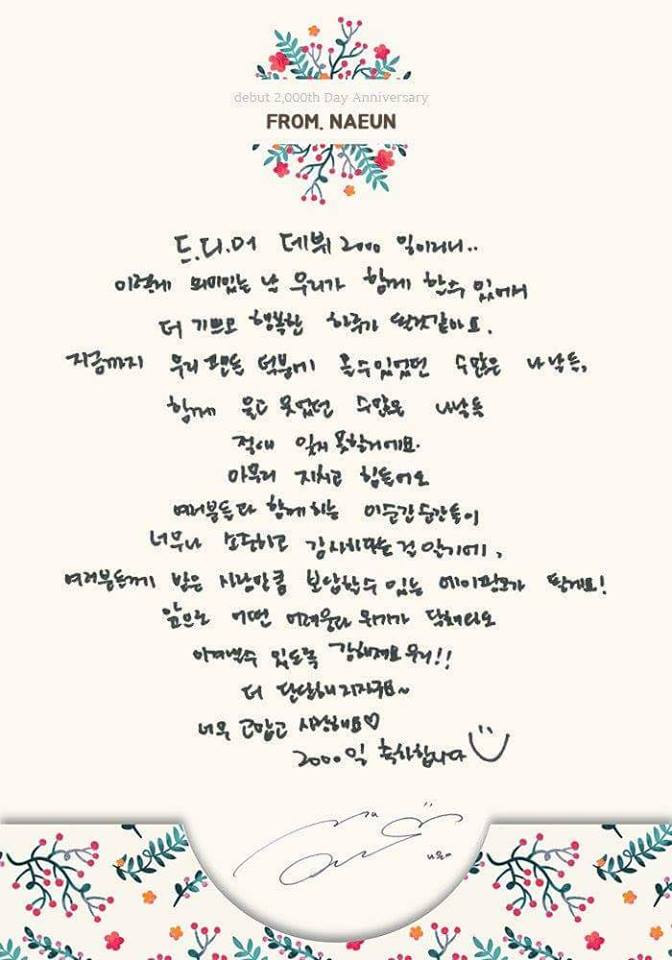 debut 2,000th Day Anniversary
FROM. NAEUN
드.디.어 데뷔 2000 일이라니..
이렇게 의미있는 날 우리가 함께 할 수 있어서
더 기쁘고 행복한 하루가 될것같아요.
지금까지 우리 팬들 덕분에 올 수 있었던 수많은 나날들,
함께 울고 웃었던 수많은 나날들
절대 잊지 못할거에요.
아무리 지치고 힘들어도
여러분들과 함께하는 이순간순간들이
너무나 소중하고 감사하다는걸 알기에,
여러분들께 받은 사랑만큼 보답할수 있는 에이핑크가 될게요!
앞으로 어떤 어려움과 위기가 닥쳐도
이겨낼수 있도록 강해져요 우리!!
더 단단해지자구요~
너무 고맙고 사랑해요♡
2000일 축하합니다